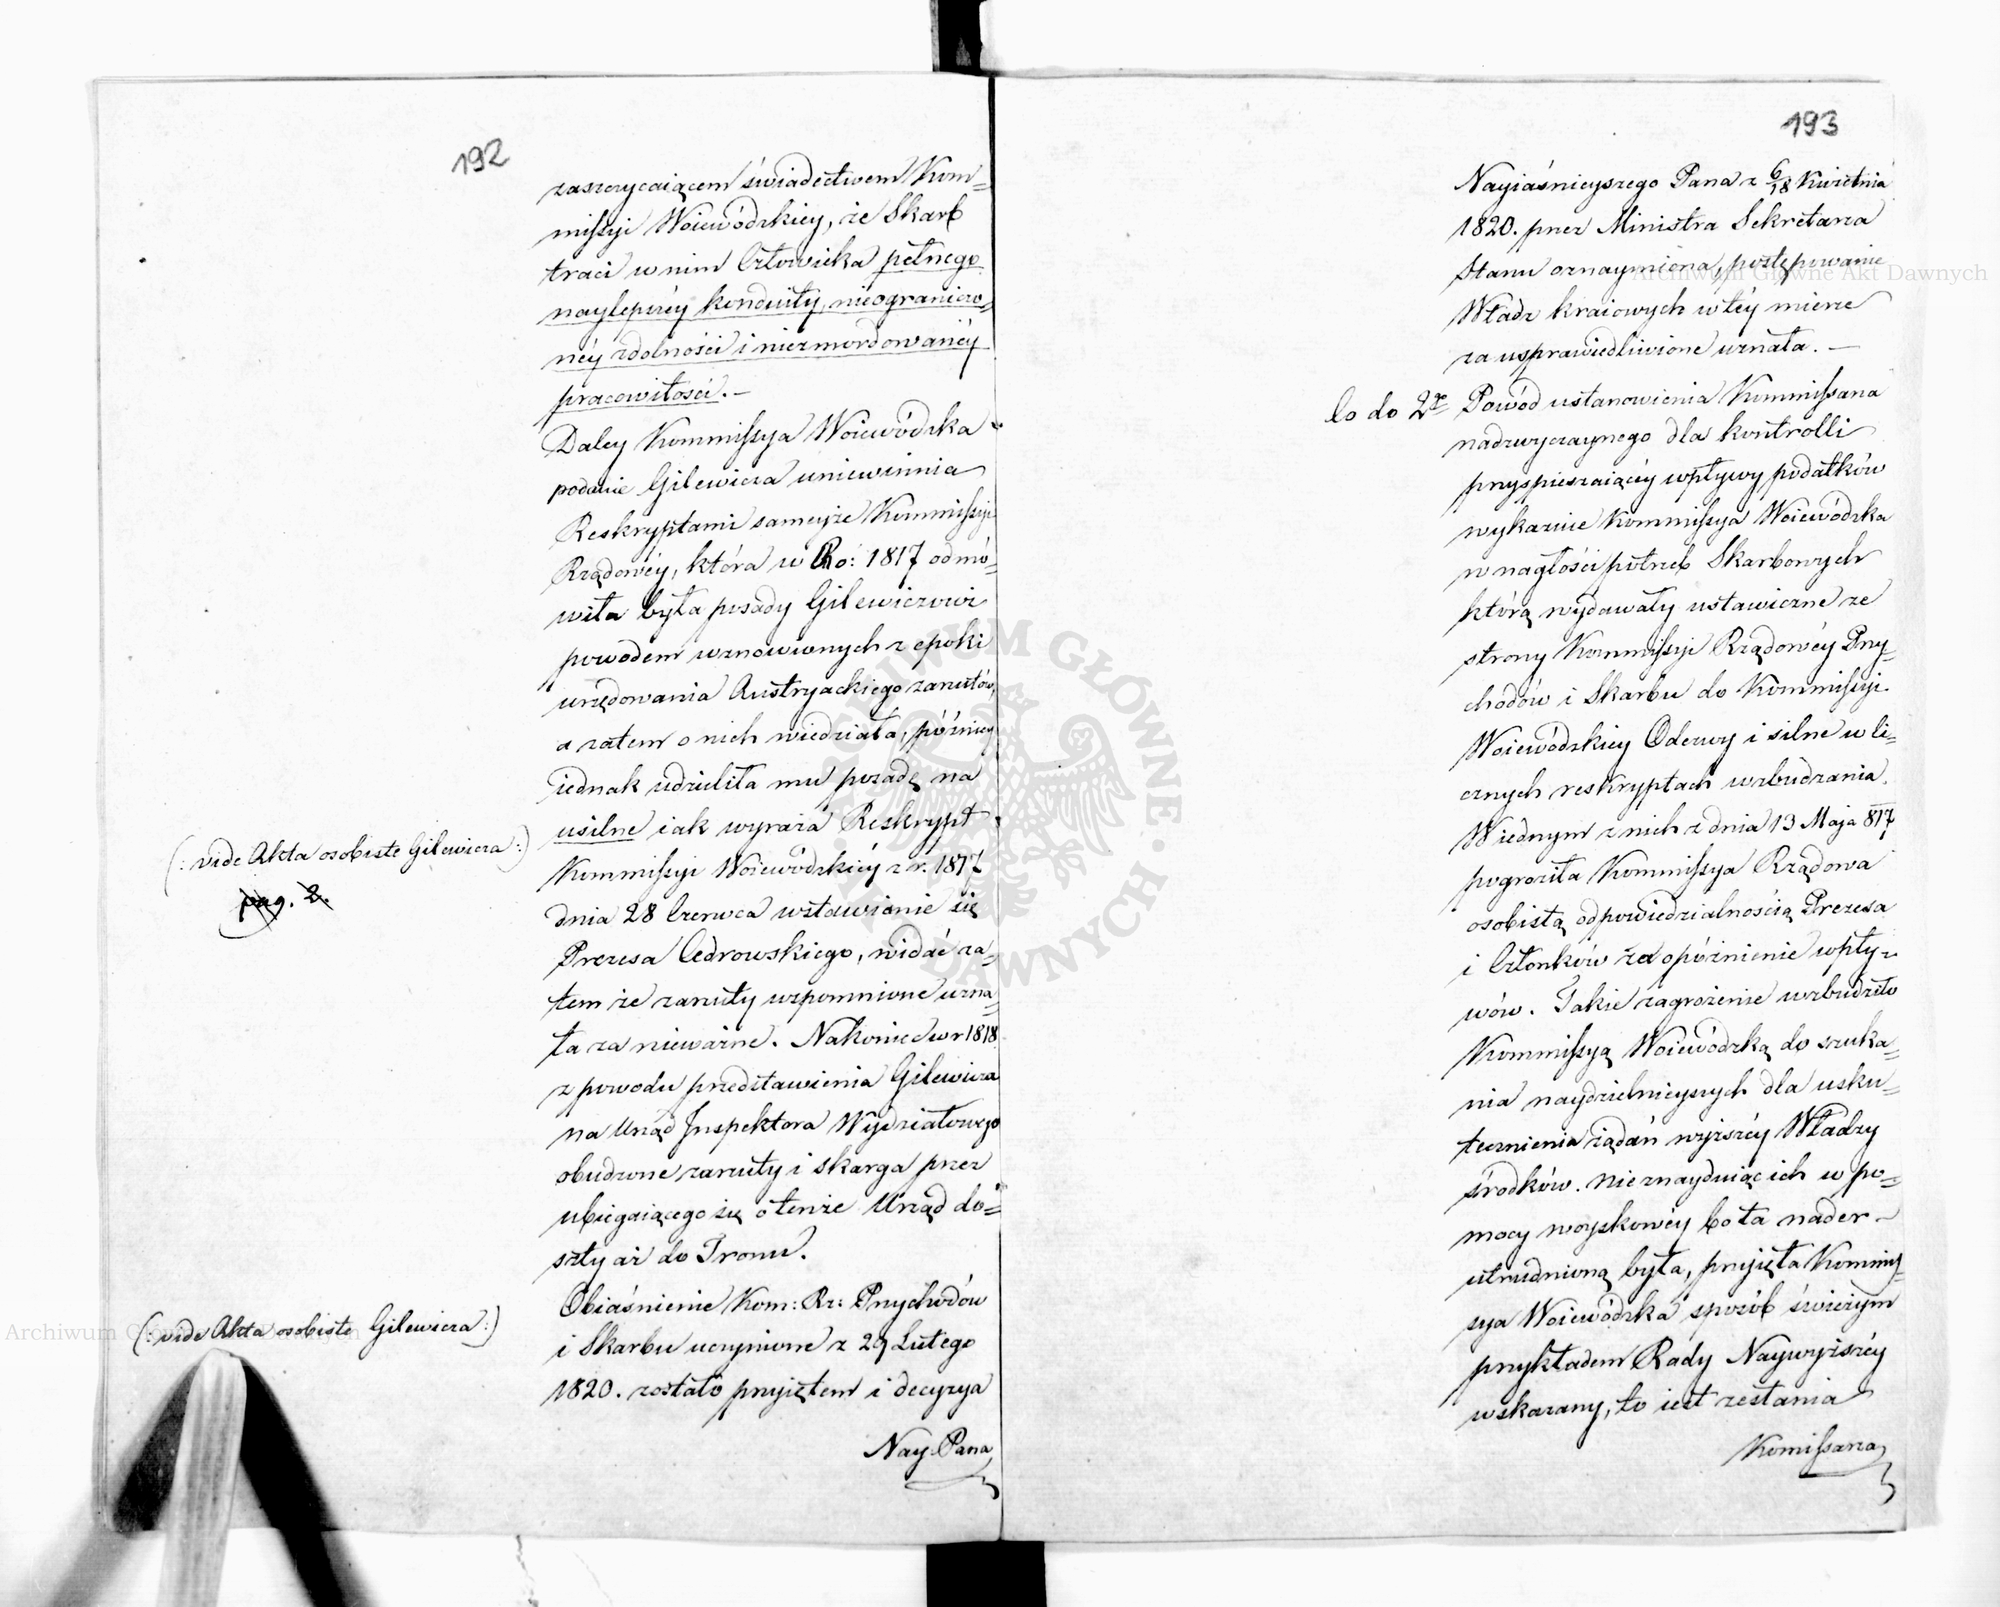 192
zaszczycaiącem świadectwem Kom=
missyi Woiewódzkiey, że Skarb
traci w nim Człowieka pełnego
naylepszéy konduity, nieograniczo=
néy zdolności i niezmordowanéy
pracowitości. —
Daley Kommissya Woiewódzka
podanie Gilewicza uniewinnia
Reskryptami sameyże Kommissyi
Rządowéy, która w Ro: 1817 odmó=
wiła była posady Gilewiczowi
powodem wznowionych z epoki
urzędowania Austryackiego zarzutów,
a zatem o nich wiedziała, późniey
iednak udzieliła mu posadę na
usilne iak wyraża Reskrypt
(: vide Akta osobiste Gilewicza :)
pag. 2.
Kommissyi Woiewódzkiéy z r. 1817
dnia 28 Czerwca wstawianie się
Prezesa Cedrowskiego, widać za=
tem że zarzuty wspomnione uzna=
ła za nieważne. Nakoniec w r 1818
z powodu przedstawienia Gilewicza
na Urząd Inspektora Wydziałowego
obudzone zarzuty i skarga przez
ubiegaiącego się o tenże Urząd do=
szły aż do Tronu.
Obiaśnienie Kom: Rz: Przychodów
(: vide Akta osobiste Gilewicza :)
i Skarbu uczynione z 29 Lutego
1820. zostało przyiętem i decyzya
Nay. Pana
193
Nayiaśnieyszego Pana z 6/18 Kwietnia
1820. przez Ministra Sekretarza
Stanu oznaymiona, postępowanie
Władz kraiowych w téy mierze
za usprawiedliwione uznała. —
Co do 2º Powód ustanowienia Kommissarza
nadzwyczaynego dla kontrolli
przyspieszaiącéy wpływy podatków
wykazuie Kommissya Woiewódzka
w nagłości potrzeb Skarbowych
którą wydawały ustawiczne ze
strony Kommissyi Rządowéy Przy=
chodów i Skarbu do Kommissyi
Woiewódzkiey Odezwy i silne w li=
cznych reskryptach wzbudzania.
W iednym z nich z dnia 13 Maja 817
pogroziła Kommissya Rządowa
osobistą odpowiedzialnością Prezesa
i Członków za opóźnienie wpły=
wów. Takie zagrożenie wzbudziło
Kommissyą Woiewódzką do szuka=
nia naydzielnieyszych dla usku=
tecznienia żądań wyższéy Władzy
środków. Nieznayduiąc ich w po=
mocy woyskowéy bo ta nader
utrudnioną była, przyięła Kommis=
sya Woiewódzka sposób świeżym
przykładem Rady Naywyższéy
wskazany, to iest zesłania
Komissarza
Archiwum Główne Akt Dawnych
ARCHIWUM GŁÓWNE AKT DAWNYCH